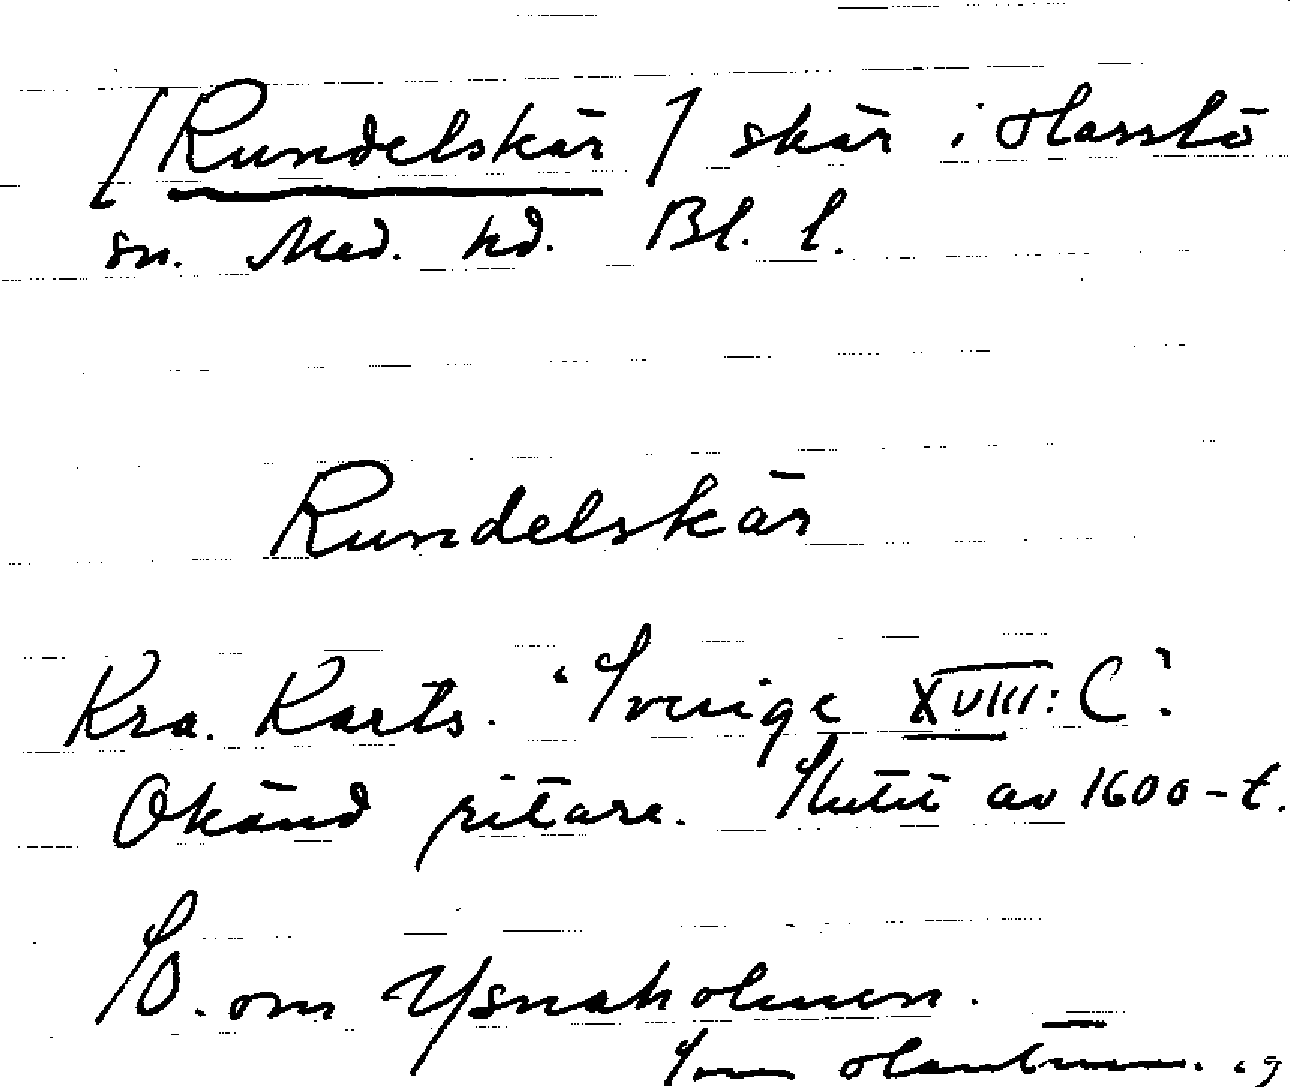 [Rundelskär] skär i Hasslö
sn. Med. hd. Bl. l.
Rundelskär
Kra. Karts. "Sverige XVIII: C".
Okänd ritare. Slutet av 1600-t.
SO. om Ysnaholmen.